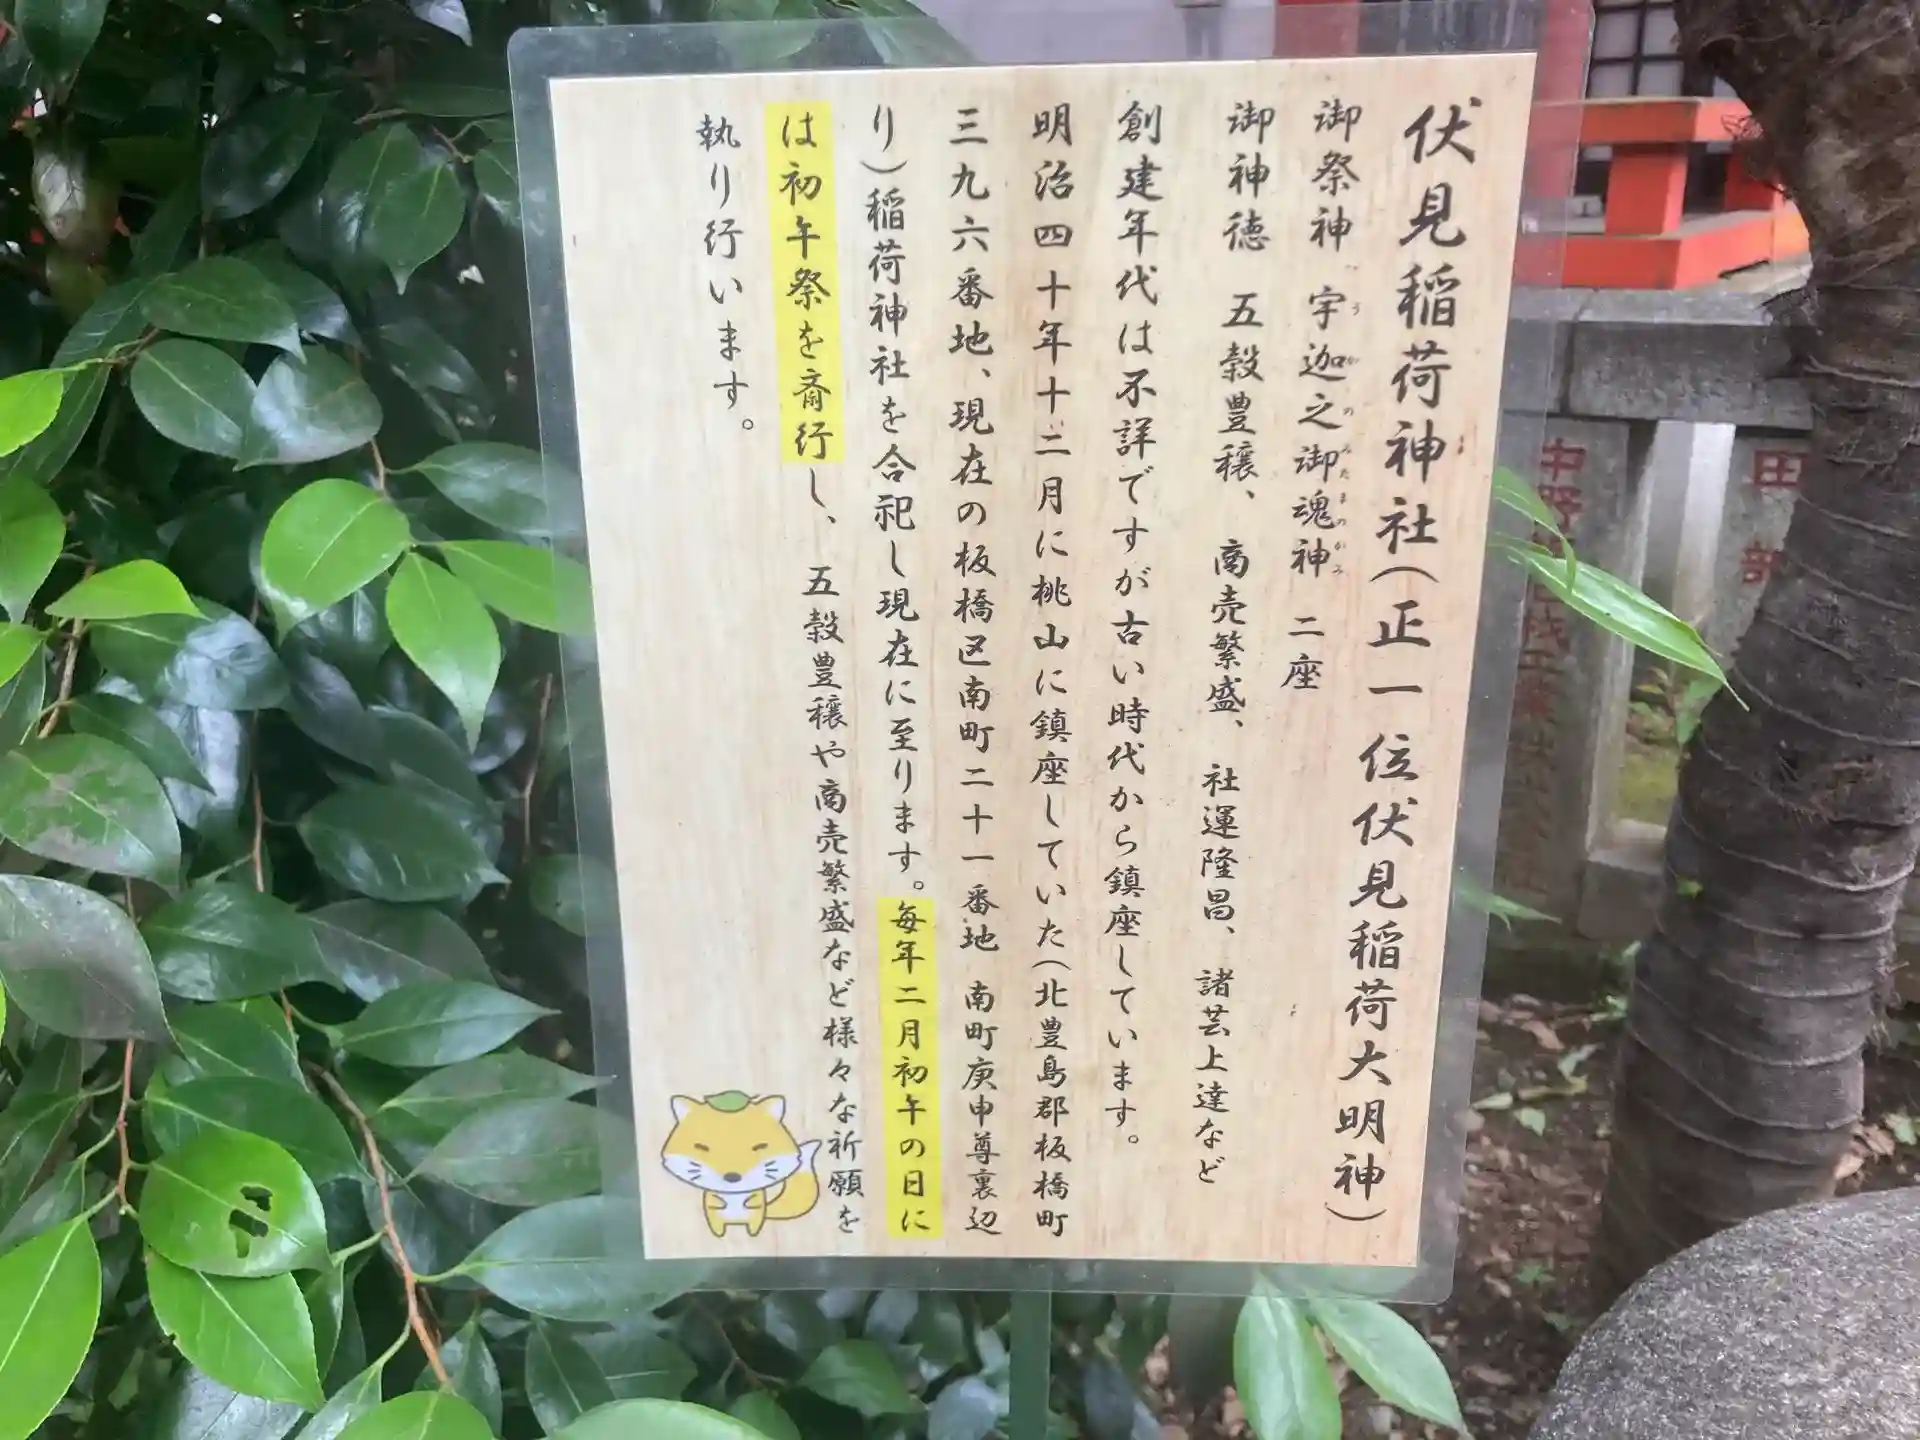 伏見稲荷神社(正一位伏見稲荷大明神)
御祭神 宇迦之御魂神 二座
うかのみたまのかみ
御神徳 五穀豊穣、商売繁盛、社運隆昌、諸芸上達など
創建年代は不詳ですが古い時代から鎮座しています。
明治四十年十二月に桃山に鎮座していた(北豊島郡板橋町
三九六番地、現在の板橋区南町二十一番地 南町庚申尊裏辺
り)稲荷神社を合祀し現在に至ります。毎年二月初午の日に
は初午祭を斎行し、五穀豊穣や商売繁盛など様々な祈願を
執り行います。
中野
田部